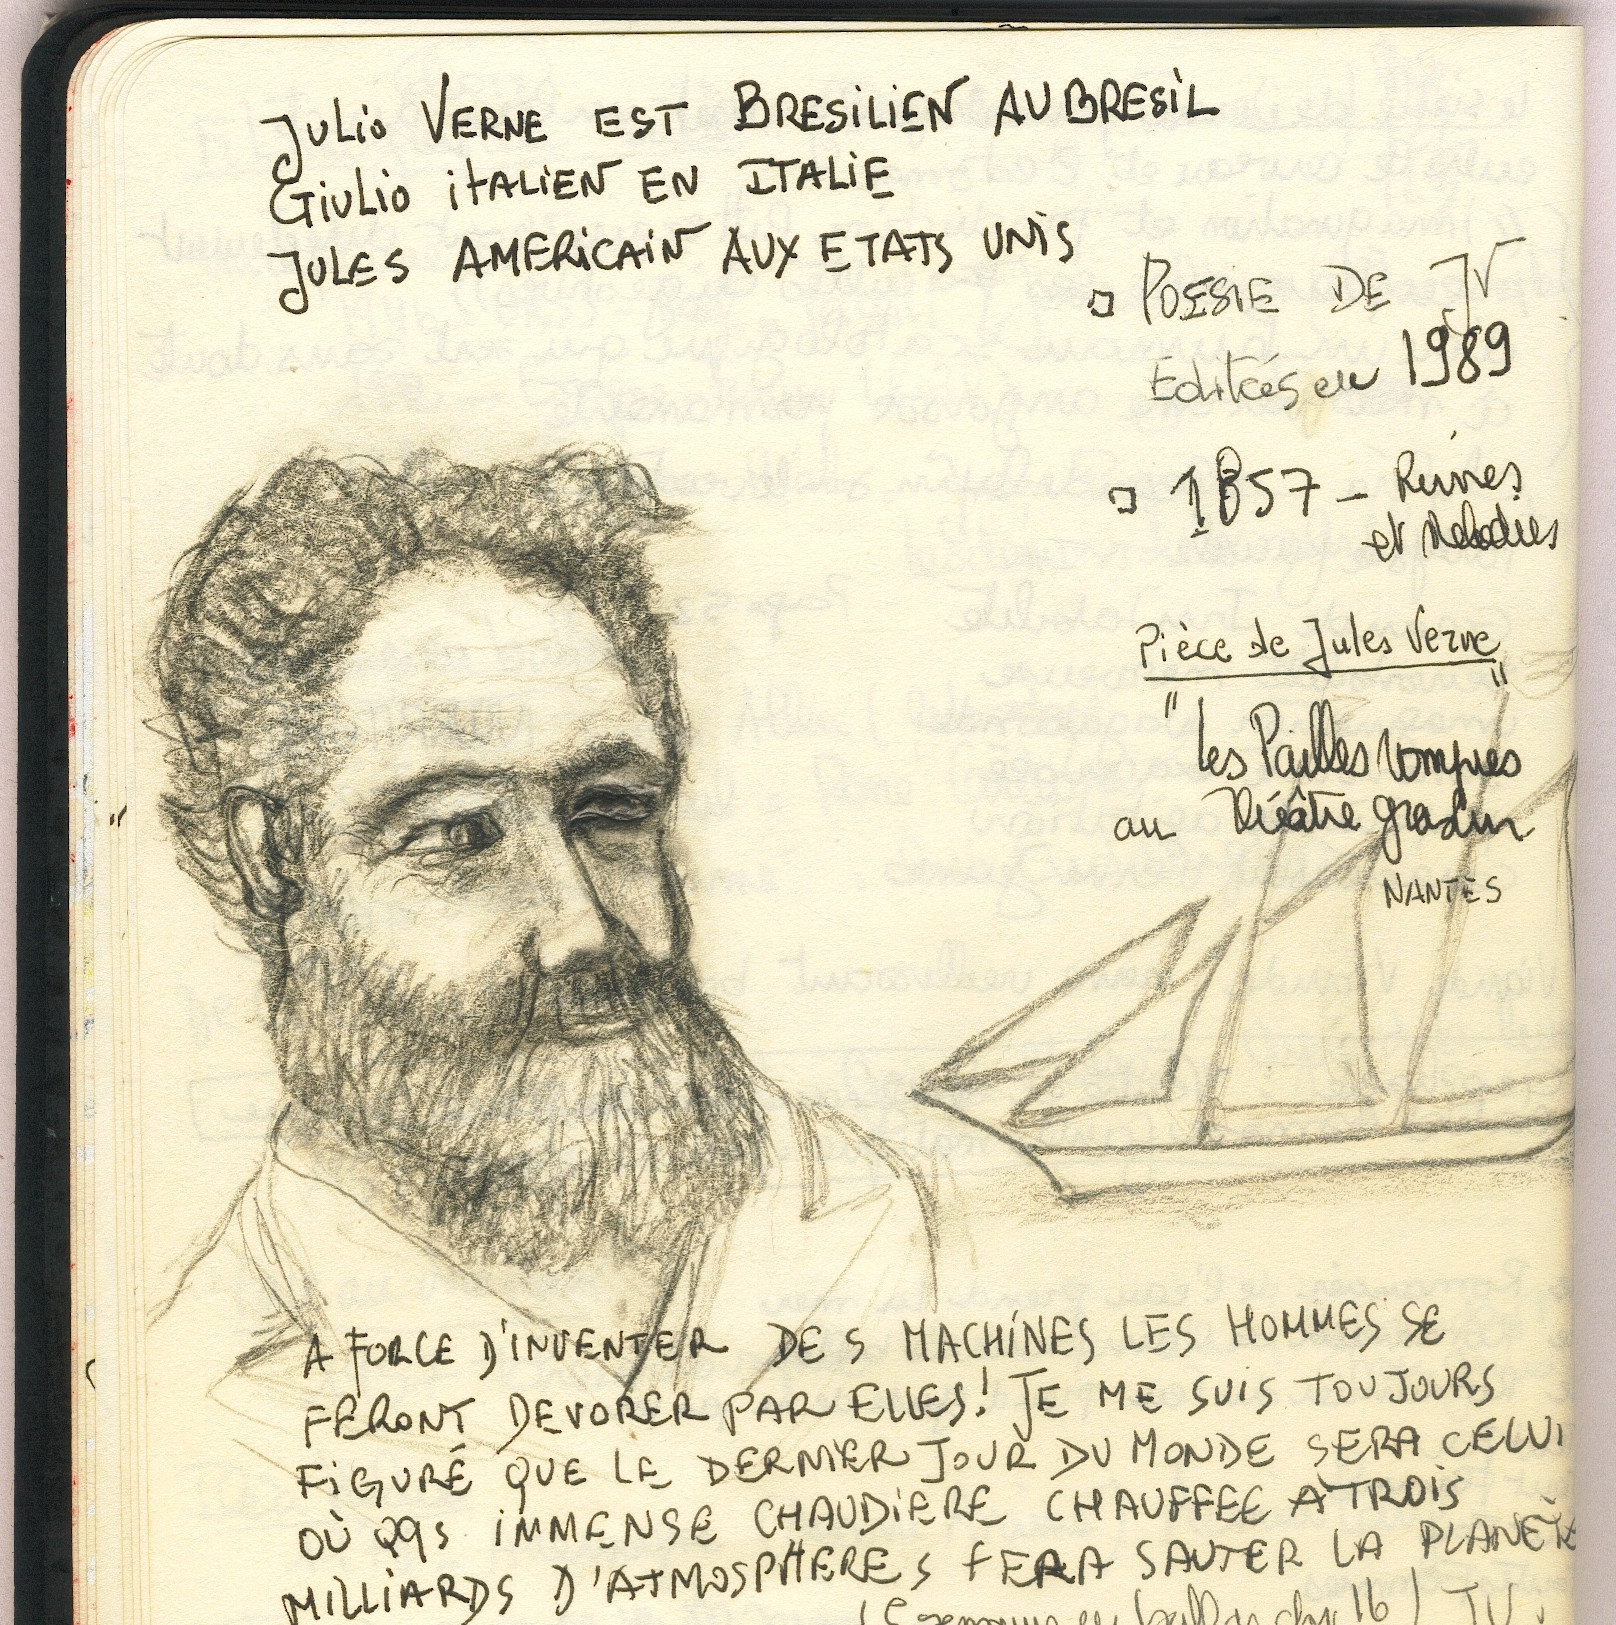 Julio VERNE EST BRESILIEN AU BRESIL
Giulio iTALIEN EN ITALIE
JULES AMERICAIN AUX ETATS UNIS
POESIE DE JV
Editées en 1989
1857 – Ruines
et Melodies
Pièce de Jules Verne
"Les Pailles rompues"
au théâtre Graslin
NANTES
A FORCE D'INVENTER DES MACHINES LES HOMMES SE
FERONT DEVORER PAR ELLES! JE ME SUIS TOUJOURS
FIGURÉ QUE LE DERNIER JOUR DU MONDE SERA CELUI
OÙ QQs IMMENSE CHAUDIERE CHAUFFEE A TROIS
MILLIARDS D'ATMOSPHERES FERA SAUTER LA PLANÈTE
(5 semaines en ballon chp 16) JV.